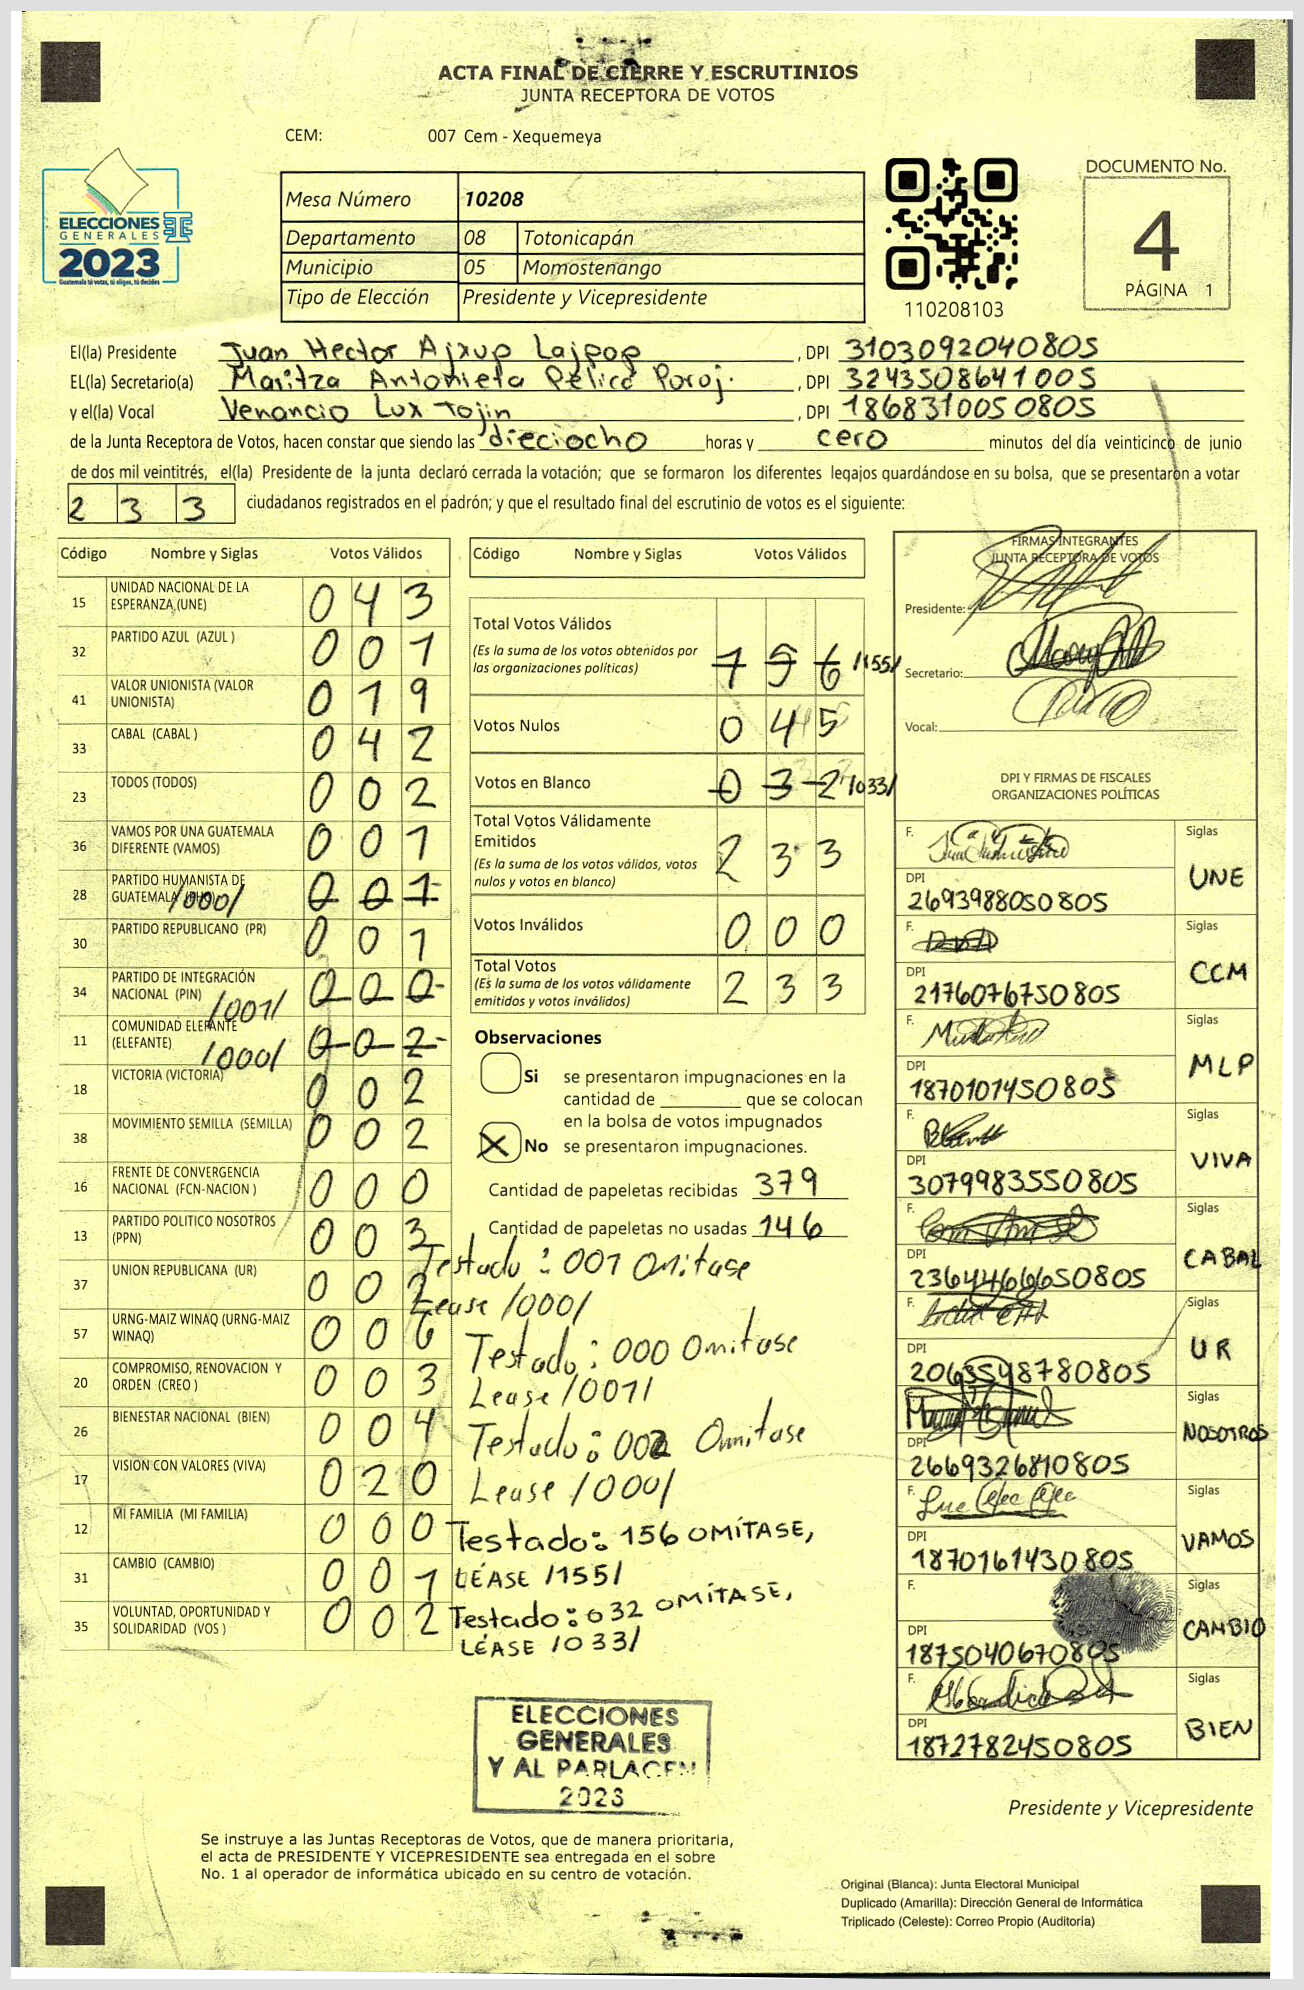 ACTA FINAL DE CIERRE Y ESCRUTINIOS
JUNTA RECEPTORA DE VOTOS
CEM: 007 Cem - Xequemeya
ELECCIONES
GENERALES
2023
Guatemala tú votas, tú eliges, tú decides
Mesa Número 10208
Departamento 08 Totonicapán
Municipio 05 Momostenango
Tipo de Elección Presidente y Vicepresidente
110208103
DOCUMENTO No.
4
PÁGINA 1
El(la) Presidente Juan Hector Ajxup Lajpop, DPI 3103092040805
EL(la) Secretario(a) Maritza Antonieta Pelicó Poroj., DPI 3243508641005
y el(la) Vocal Venancio Lux Tojin, DPI 1868310050805
de la Junta Receptora de Votos, hacen constar que siendo las dieciocho horas y cero minutos del día veinticinco de junio
de dos mil veintitrés, el(la) Presidente de la junta declaró cerrada la votación; que se formaron los diferentes legajos guardándose en su bolsa, que se presentaron a votar
233 ciudadanos registrados en el padrón; y que el resultado final del escrutinio de votos es el siguiente:
Código Nombre y Siglas Votos Válidos
15 UNIDAD NACIONAL DE LA ESPERANZA (UNE) 043
32 PARTIDO AZUL (AZUL ) 001
41 VALOR UNIONISTA (VALOR UNIONISTA) 019
33 CABAL (CABAL ) 042
23 TODOS (TODOS) 002
36 VAMOS POR UNA GUATEMALA DIFERENTE (VAMOS) 001
28 PARTIDO HUMANISTA DE GUATEMALA (PHG) /000/ 001
30 PARTIDO REPUBLICANO (PR) 001
34 PARTIDO DE INTEGRACIÓN NACIONAL (PIN) /001/ 000
11 COMUNIDAD ELEFANTE (ELEFANTE) /000/ 002
18 VICTORIA (VICTORIA) 002
38 MOVIMIENTO SEMILLA (SEMILLA) 002
16 FRENTE DE CONVERGENCIA NACIONAL (FCN-NACION ) 000
13 PARTIDO POLITICO NOSOTROS (PPN) 003
37 UNION REPUBLICANA (UR) 002
57 URNG-MAIZ WINAQ (URNG-MAIZ WINAQ) 006
20 COMPROMISO, RENOVACION Y ORDEN (CREO ) 003
26 BIENESTAR NACIONAL (BIEN) 004
17 VISION CON VALORES (VIVA) 020
12 MI FAMILIA (MI FAMILIA) 000
31 CAMBIO (CAMBIO) 001
35 VOLUNTAD, OPORTUNIDAD Y SOLIDARIDAD (VOS ) 002
Código Nombre y Siglas Votos Válidos
Total Votos Válidos
(Es la suma de los votos obtenidos por
las organizaciones políticas) 156 /155/
Votos Nulos 045
Votos en Blanco 032 /033/
Total Votos Válidamente
Emitidos
(Es la suma de los votos válidos, votos
nulos y votos en blanco) 233
Votos Inválidos 000
Total Votos
(Es la suma de los votos válidamente
emitidos y votos inválidos) 233
Observaciones
Si se presentaron impugnaciones en la
cantidad de ________ que se colocan
en la bolsa de votos impugnados
X No se presentaron impugnaciones.
Cantidad de papeletas recibidas 379
Cantidad de papeletas no usadas 146
Testado: 001 Omitase
Lease /000/
Testado: 000 Omitase
Lease /001/
Testado: 002 Omitase
Lease /000/
Testado: 156 OMÍTASE,
LÉASE /155/
Testado: 032 OMÍTASE,
LÉASE /033/
FIRMAS INTEGRANTES
JUNTA RECEPTORA DE VOTOS
Presidente:
Secretario:
Vocal:
DPI Y FIRMAS DE FISCALES
ORGANIZACIONES POLÍTICAS
F. Siglas
DPI 2693988050805 UNE
F. Siglas
DPI 2176076750805 CCM
F. Siglas
DPI 1870101450805 MLP
F. Siglas
DPI 3079983550805 VIVA
F. Siglas
DPI 2364466650805 CABAL
F. Siglas
DPI 2063548780805 UR
F. Siglas
DPI 2669326810805 NOSOTROS
F. Siglas
DPI 1870161430805 VAMOS
F. Siglas
DPI 1875040670805 CAMBIO
F. Siglas
DPI 1872782450805 BIEN
ELECCIONES
GENERALES
Y AL PARLACEN
2023
Presidente y Vicepresidente
Se instruye a las Juntas Receptoras de Votos, que de manera prioritaria,
el acta de PRESIDENTE Y VICEPRESIDENTE sea entregada en el sobre
No. 1 al operador de informática ubicado en su centro de votación.
Original (Blanca): Junta Electoral Municipal
Duplicado (Amarilla): Dirección General de Informática
Triplicado (Celeste): Correo Propio (Auditoría)